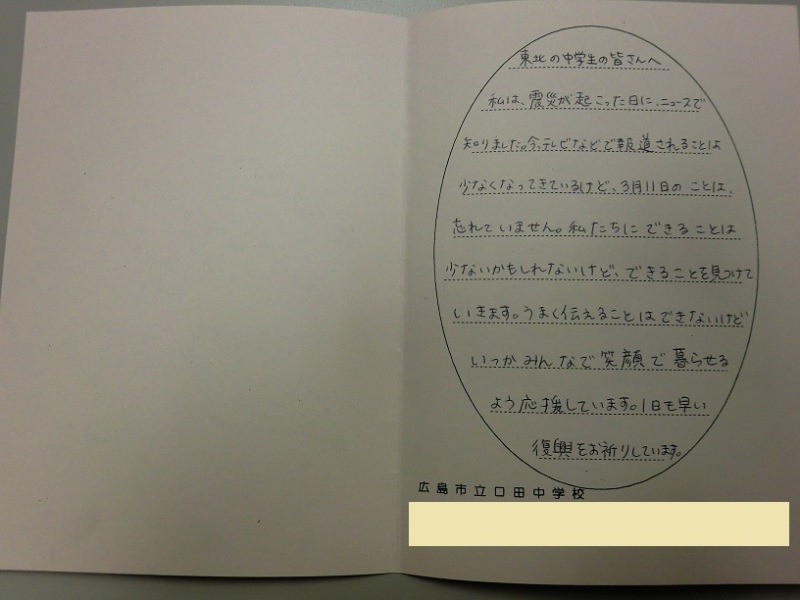 東北の中学生の皆さんへ
私は、震災が起こった日に、ニュースで
知りました。今、テレビなどで報道されることは
少なくなってきているけど、3月11日のことは、
忘れていません。私たちにできることは
少ないかもしれないけど、できることを見つけて
いきます。うまく伝えることはできないけど
いつかみんなで笑顔で暮らせる
よう応援しています。1日も早い
復興をお祈りしています。
広島市立口田中学校